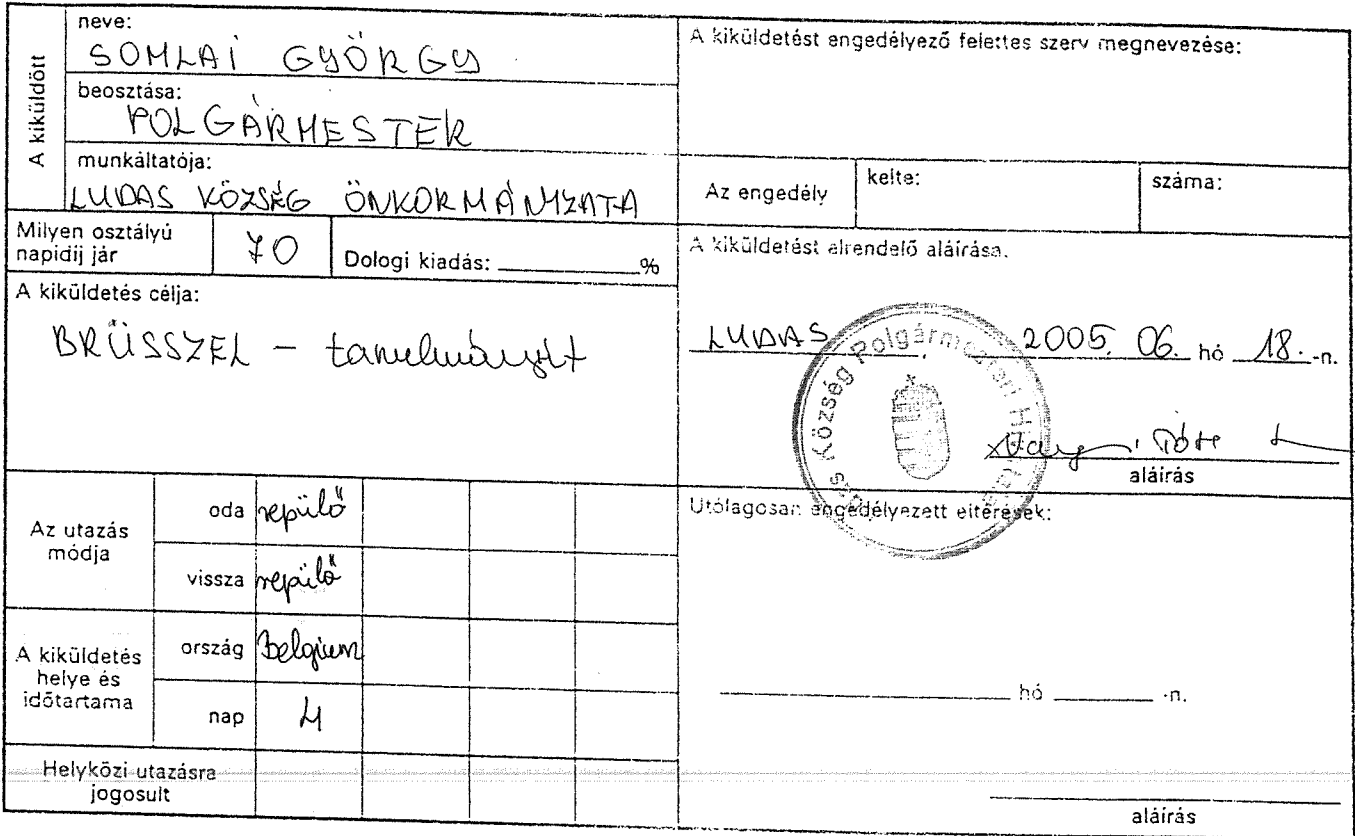 A kiküldött
neve:
SOMLAI GYÖRGY
beosztása:
POLGÁRMESTER
munkáltatója:
LUDAS KÖZSÉG ÖNKORMÁNYZATA
Milyen osztályú
napidij jár
70
Dologi kiadás: ________%
A kiküldetés célja:
BRÜSSZEL – tanulmányút
Az utazás
módja
oda repülő
vissza repülő
A kiküldetés
helye és
időtartama
ország Belgium
nap 4
Helyközi utazásra
jogosult
A kiküldetést engedélyező felettes szerv megnevezése:
Az engedély
kelte:
száma:
A kiküldetést elrendelő aláírása.
LUDAS, 2005. 06. hó 18.-n.
Község Polgármesteri
aláírás
Utólagosan engedélyezett eltérések:
________ hó ________ -n.
aláírás